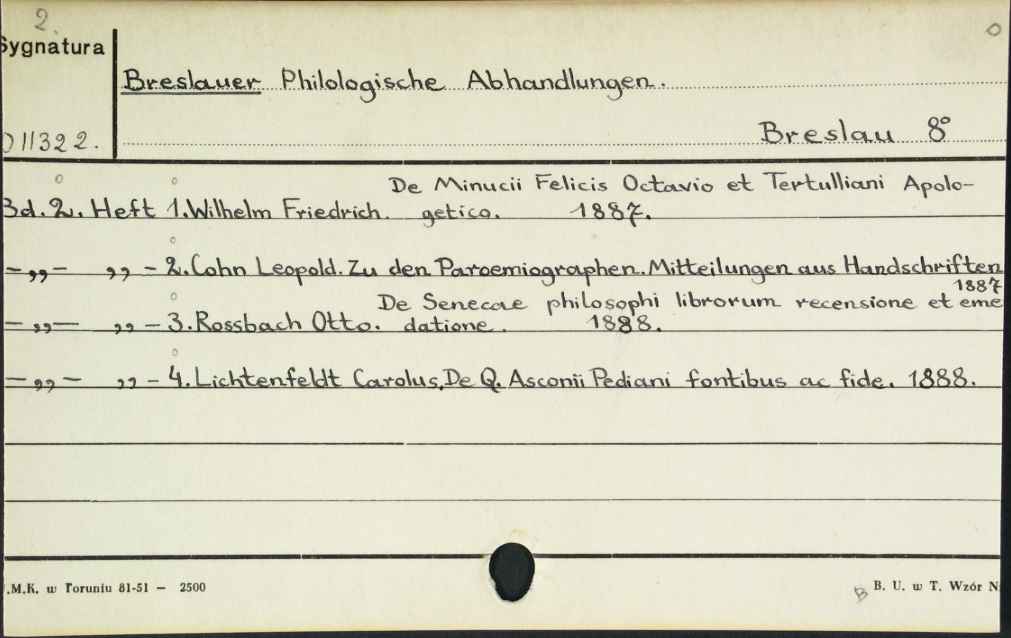 2.
Sygnatura
Breslauer Philologische Abhandlungen.
011322.
Breslau 8°
De Minucii Felicis Octavio et Tertulliani Apolo-
Bd. 2. Heft 1. Wilhelm Friedrich. getico. 1887.
-„- „ - 2. Cohn Leopold. Zu den Paroemiographen. Mitteilungen aus Handschriften
1887
De Senecae philosophi librorum recensione et eme
-„- „ - 3. Rossbach Otto. datione. 1888.
-„- „ - 4. Lichtenfeldt Carolus, De Q. Asconii Pediani fontibus ac fide. 1888.
.M.K. w Toruniu 81-51 — 2500
B B. U. w T. Wzór N